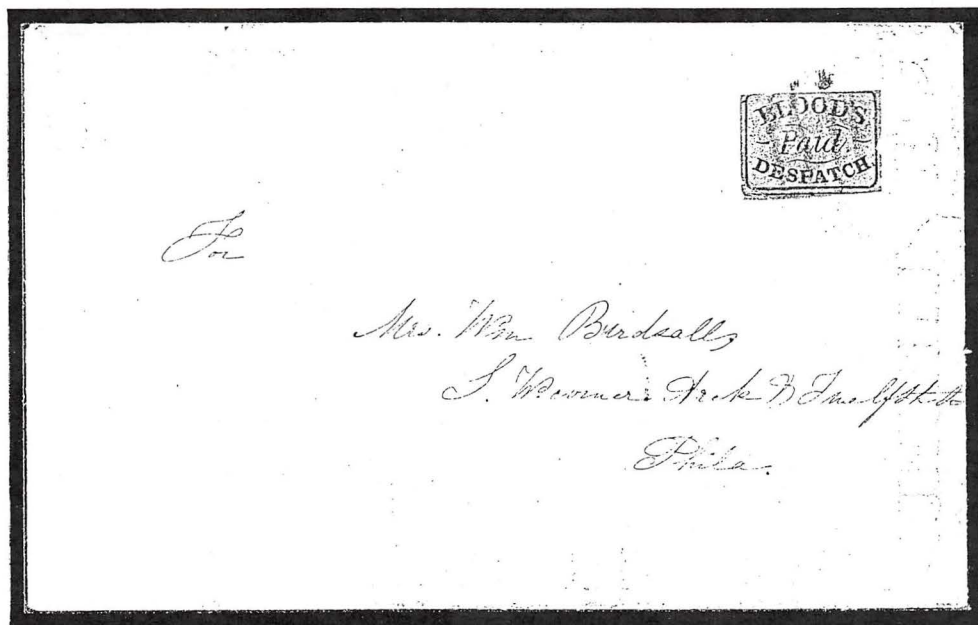 BLOOD'S
Paid
DESPATCH
For
Mrs. Wm Birdsall
S. W corner Arch & Twelfth St
Phila.